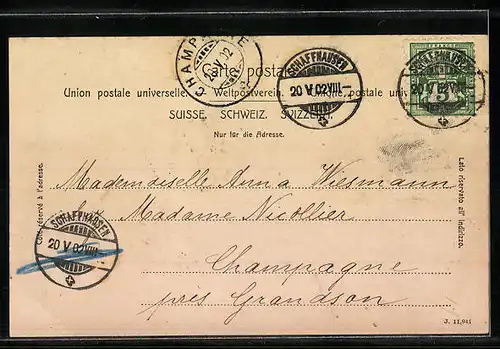 CHAMPAGNE
20 V 02
Carte postale.
SCHAFFHAUSEN
20 V 02 VIII
FRANCO
SCHAFFHAUSEN
20 V 02 VIII
5
Union postale universelle. Weltpostverein. postale universelle.
SUISSE. SCHWEIZ. SVIZZERA.
Nur für die Adresse.
Côté réservé à l'adresse.
Lato riservato all' indirizzo.
Mademoiselle Anna Wismann
Madame Nicollier
Champagne
près Grandson
SCHAFFHAUSEN
20 V 02 VIII
J. 11,941